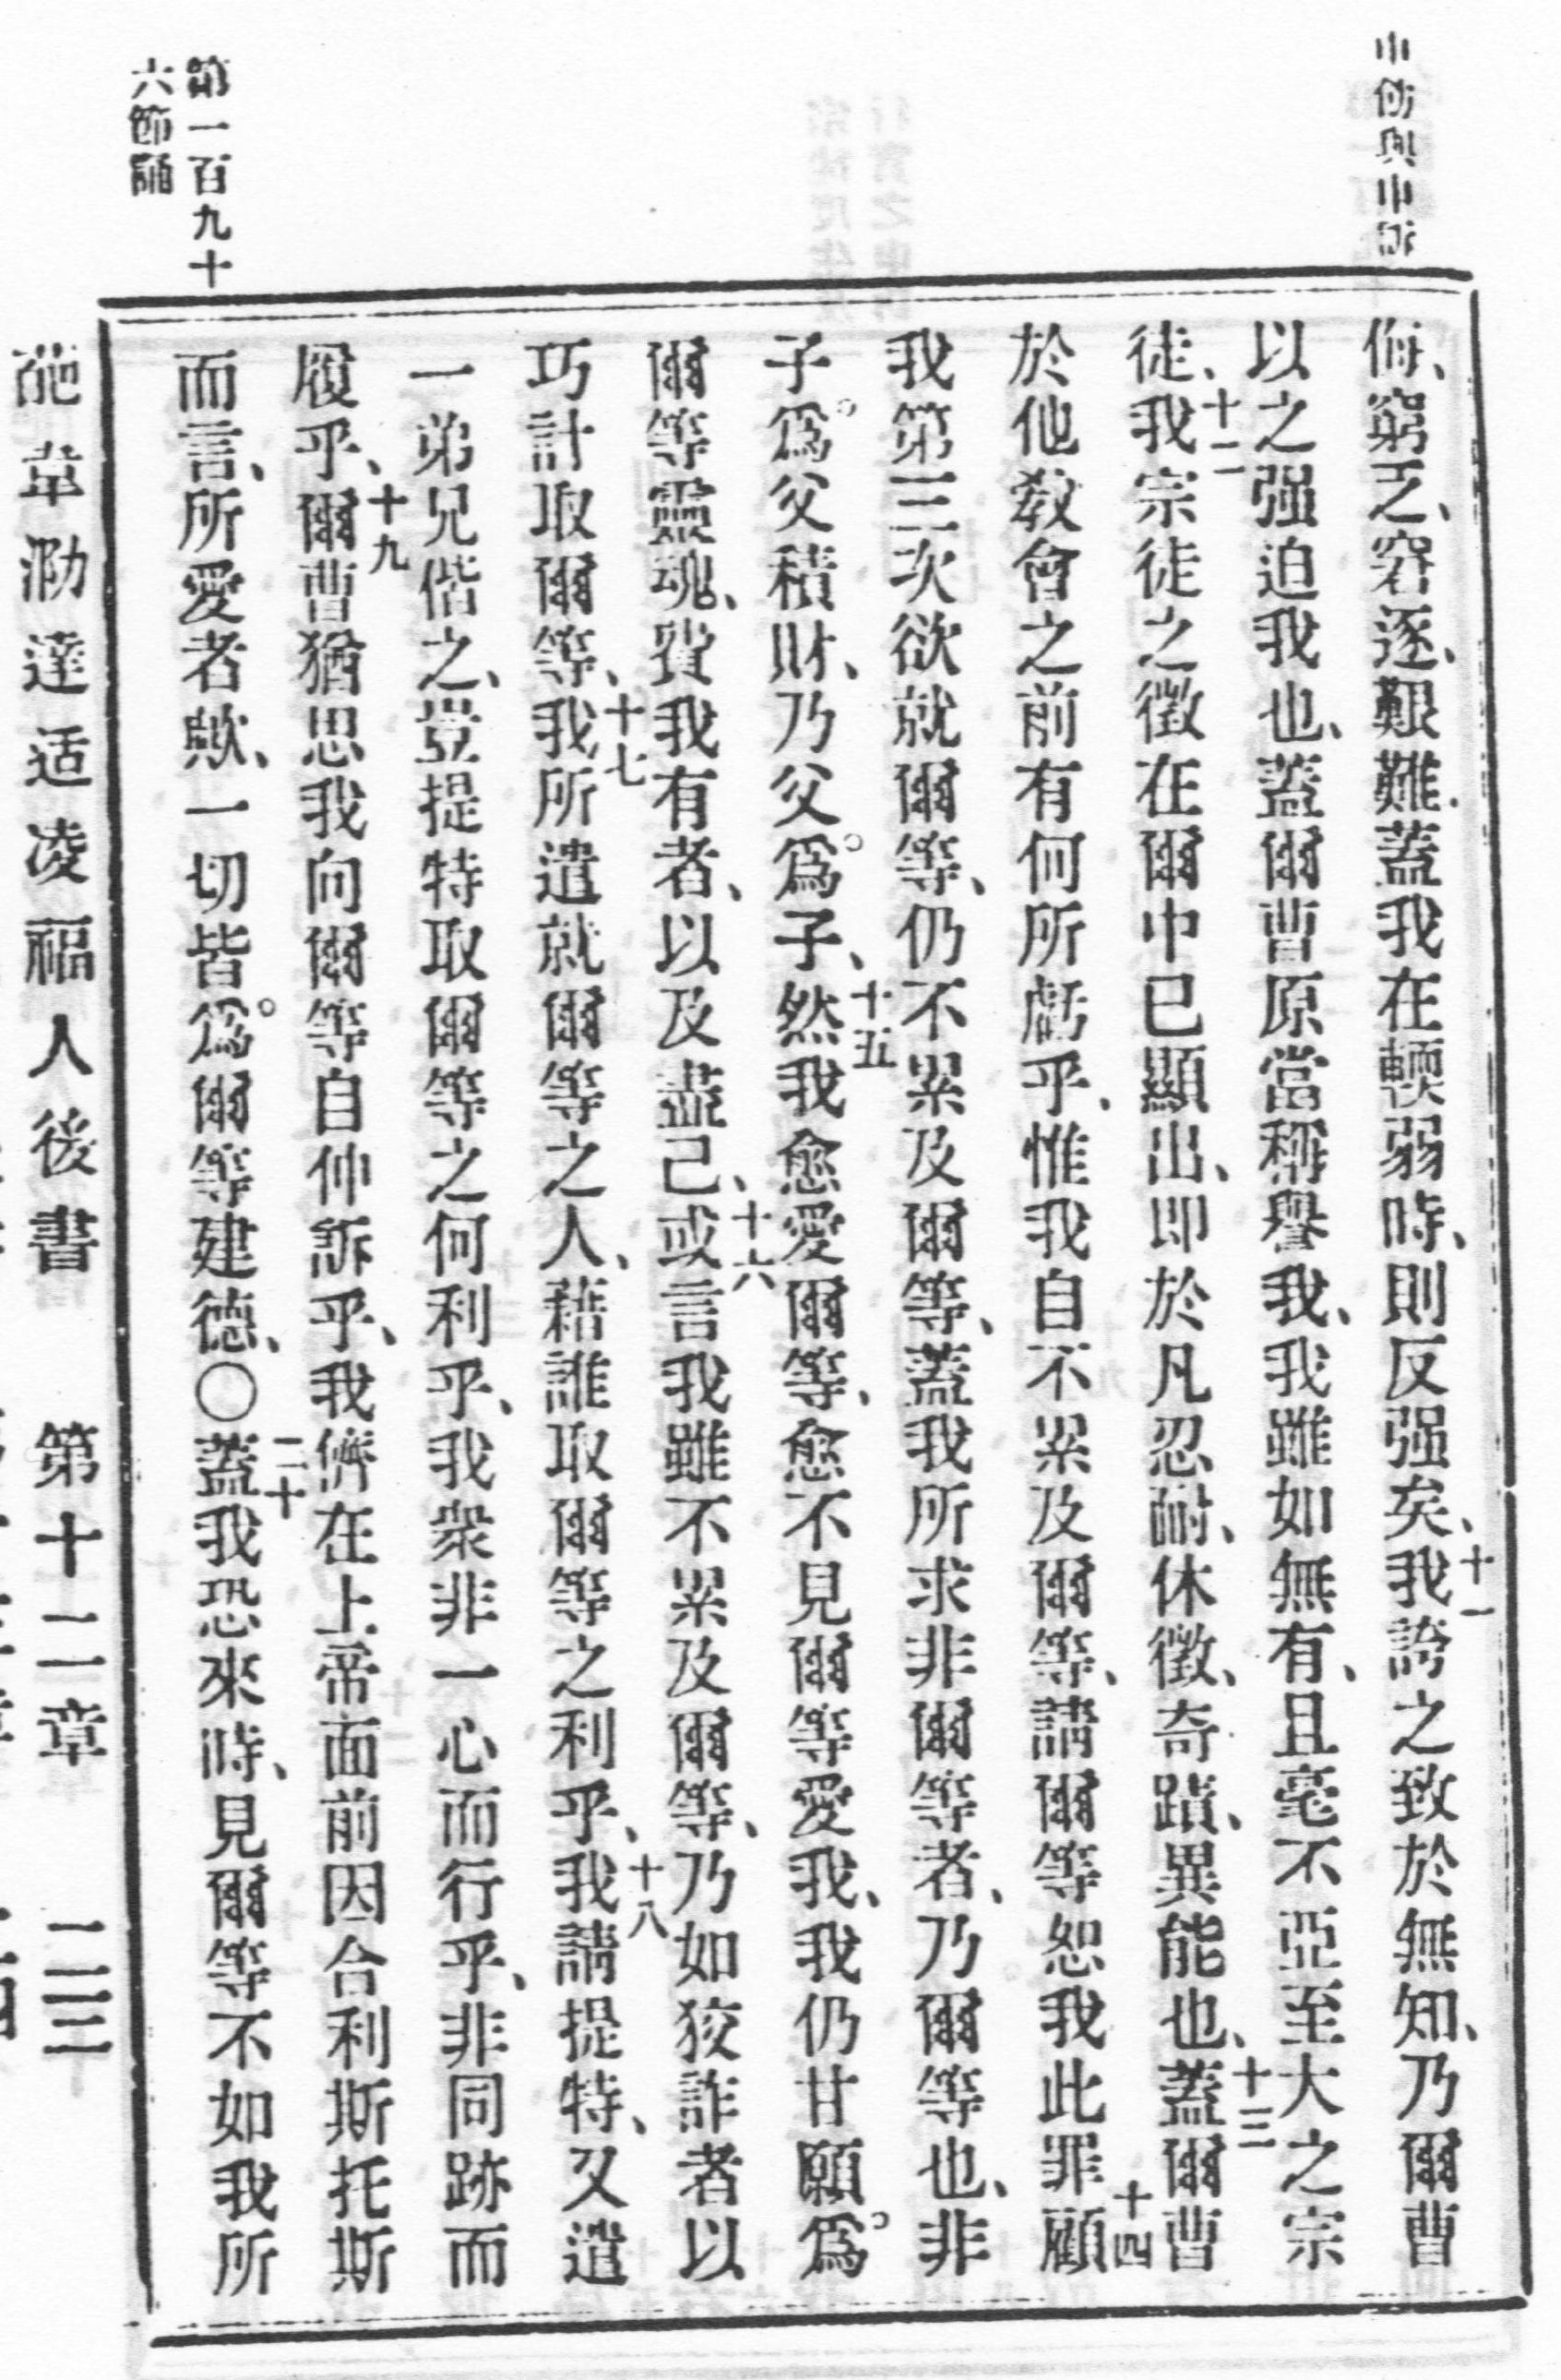 侮、窮乏、窘逐、艱難、蓋我在輭弱時、則反强矣、十一我誇之致於無知、乃爾曹
以之强迫我也、蓋爾曹原當稱譽我、我雖如無有、且毫不亞至大之宗
徒、十二我宗徒之徵在爾中已顯出、即於凡忍耐、休徵、奇蹟、異能也、十三蓋爾曹
於他教會之前有何所虧乎、惟我自不累及爾等、請爾等恕我此罪、十四顧
我第三次欲就爾等、仍不累及爾等、蓋我所求非爾等者、乃爾等也、非
子爲父積財、乃父爲子、十五然我愈愛爾等、愈不見爾等愛我、我仍甘願爲
爾等靈魂、費我有者、以及盡己、十六或言我雖不累及爾等、乃如狡詐者以
巧計取爾等、十七我所遣就爾等之人、藉誰取爾等之利乎、十八我請提特、又遣
一弟兄偕之、豈提特取爾等之何利乎、我衆非一心而行乎、非同跡而
履乎、十九爾曹猶思我向爾等自伸訴乎、我儕在上帝面前因合利斯托斯
而言、所愛者歟、一切皆爲爾等建德、〇二十蓋我恐來時、見爾等不如我所
第一百九十
六節誦
達适凌福人後書 第十二章 二三